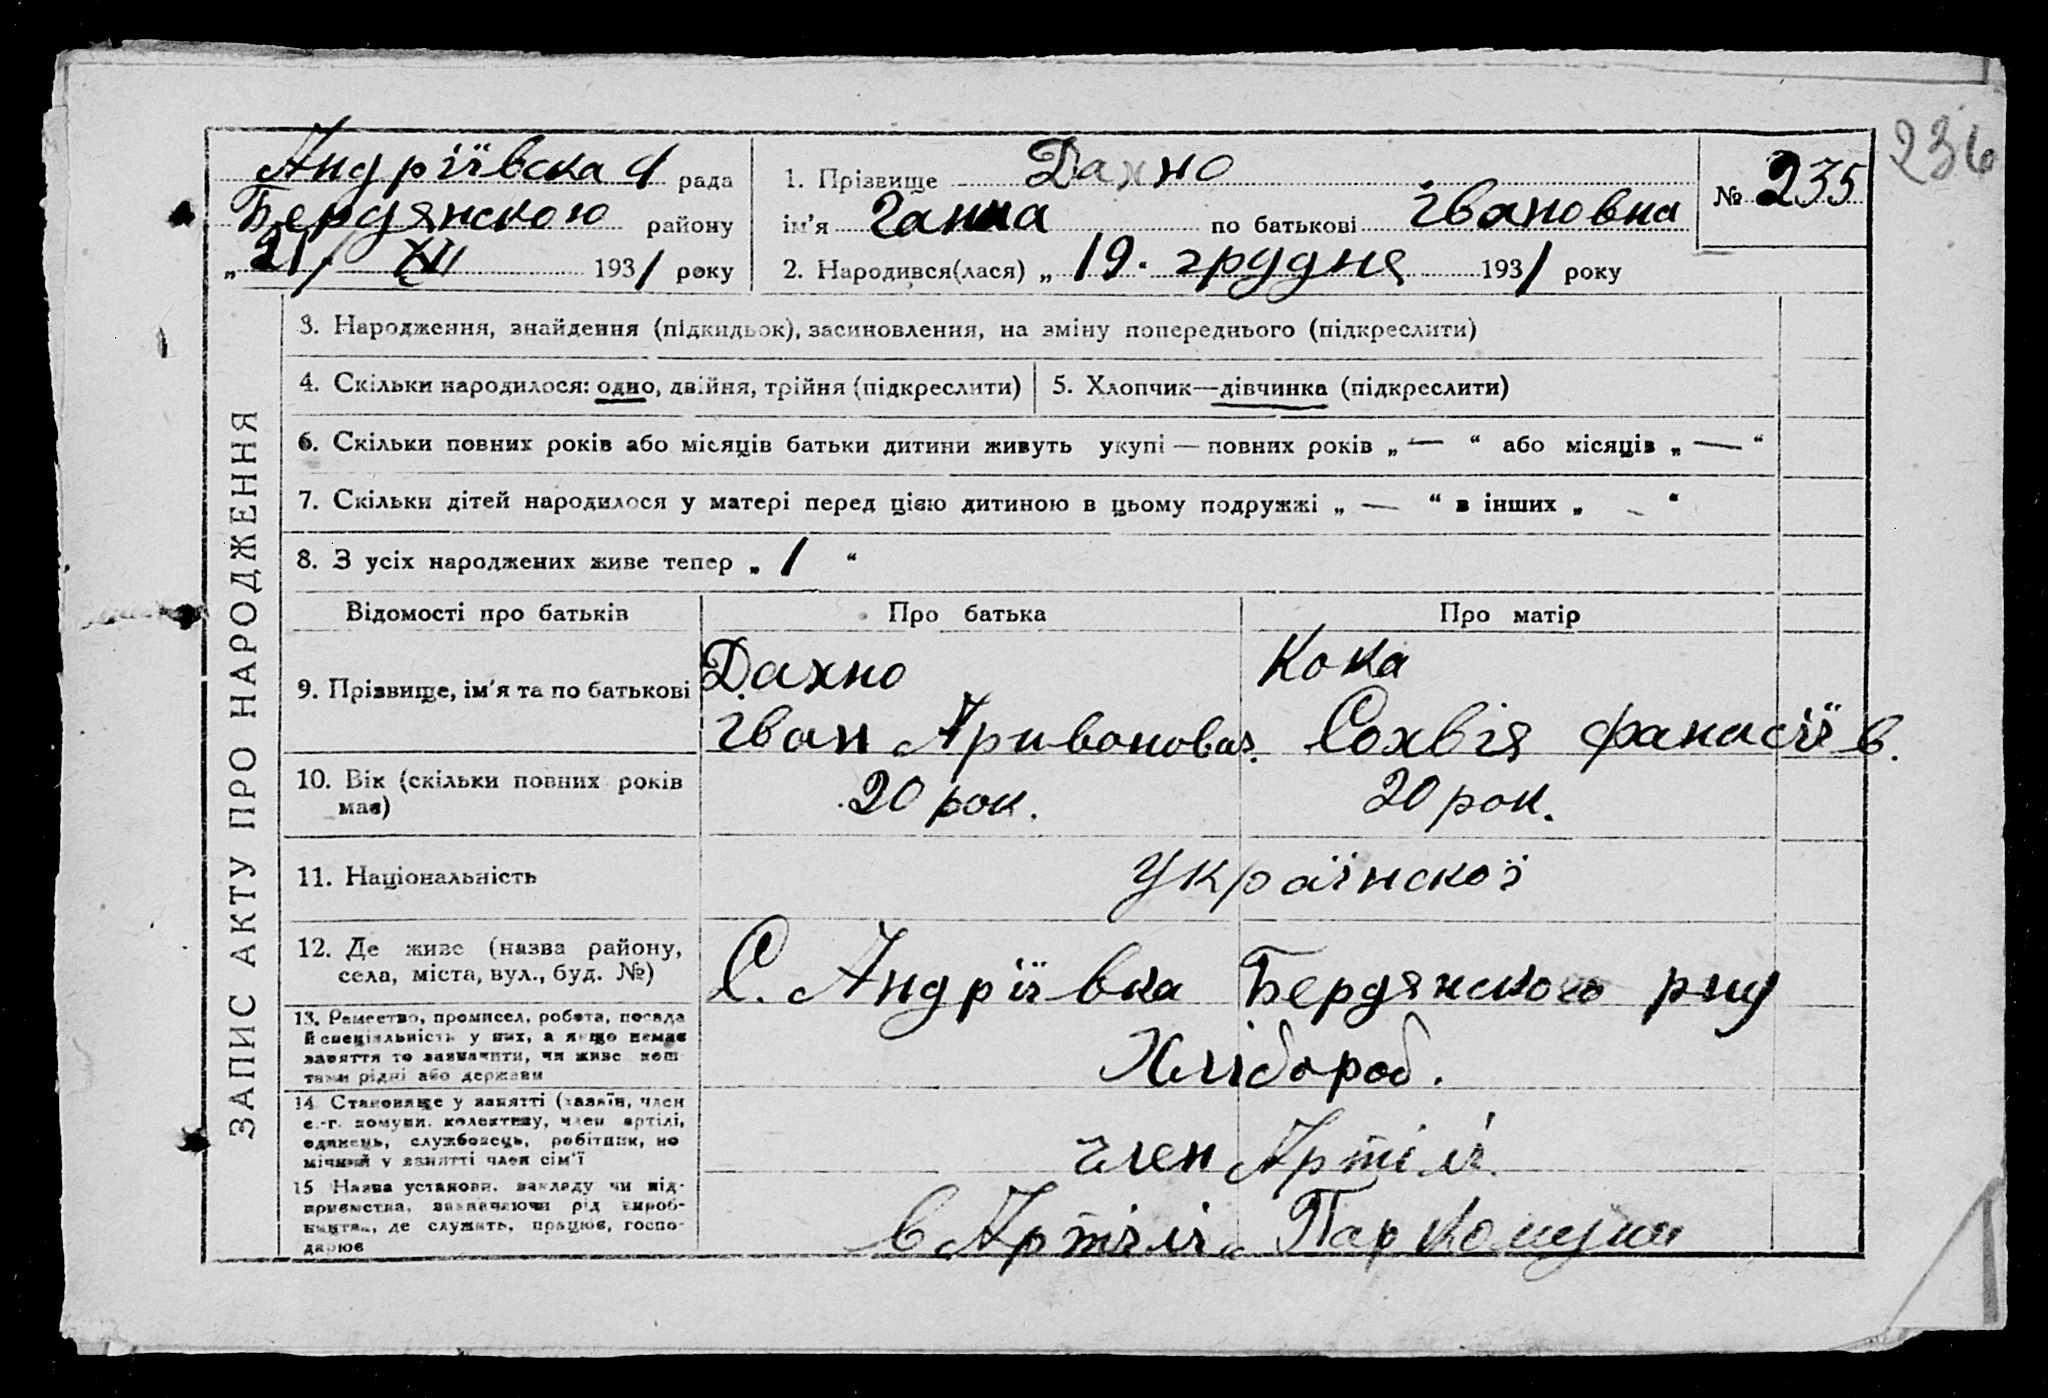 236
Андріївска рада
Бердянского району
„21/ XII 1931 року
1. Прізвище Дахно
ім'я Ганна по батькові Івановна
2. Народився(лася) „19. грудня 1931 року
№ 235
ЗАПИС АКТУ ПРО НАРОДЖЕННЯ
3. Народження, знайдення (підкидьок), засиновлення, на зміну попереднього (підкреслити)
4. Скільки народилося: одно, двійня, трійня (підкреслити)
5. Хлопчик—дівчинка (підкреслити)
6. Скільки повних років або місяців батьки дитини живуть укупі — повних років „ — “ або місяців „ — “
7. Скільки дітей народилося у матері перед цією дитиною в цьому подружжі „ — “ в інших „ - “
8. З усіх народжених живе тепер „ 1 “
Відомості про батьків
Про батька
Про матір
9. Прізвище, ім'я та по батькові
Дахно
Іван
Кока
Сохвія Фанасіїв.
10. Вік (скільки повних років
має)
20 рок.
20 рок.
11. Національність
Українскої
12. Де живе (назва району,
села, міста, вул., буд. №)
С. Андріївка Бердянского
13. Ремество, промисел, робота, посада
й спеціяльність у них, а якщо немає
заняття то зазначити, чи живе кош-
тами рідні або держави
Хлібороб.
14. Становище у занятті (хазяїн, член
с.-г. комуни, колективу, член артілі,
одинець, службовець, робітник, по
мічний у занятті член сім'ї
член Артілі.
15 Назва установи, закладу чи під-
приємства, зазначаючи рід вироб-
ництва, де служить, працює, госпо-
дарює
в Артілі